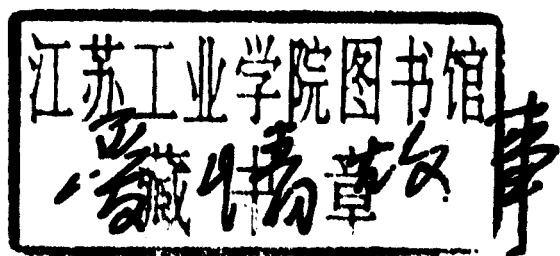 江苏工业学院图书馆
藏书章
爱情故事